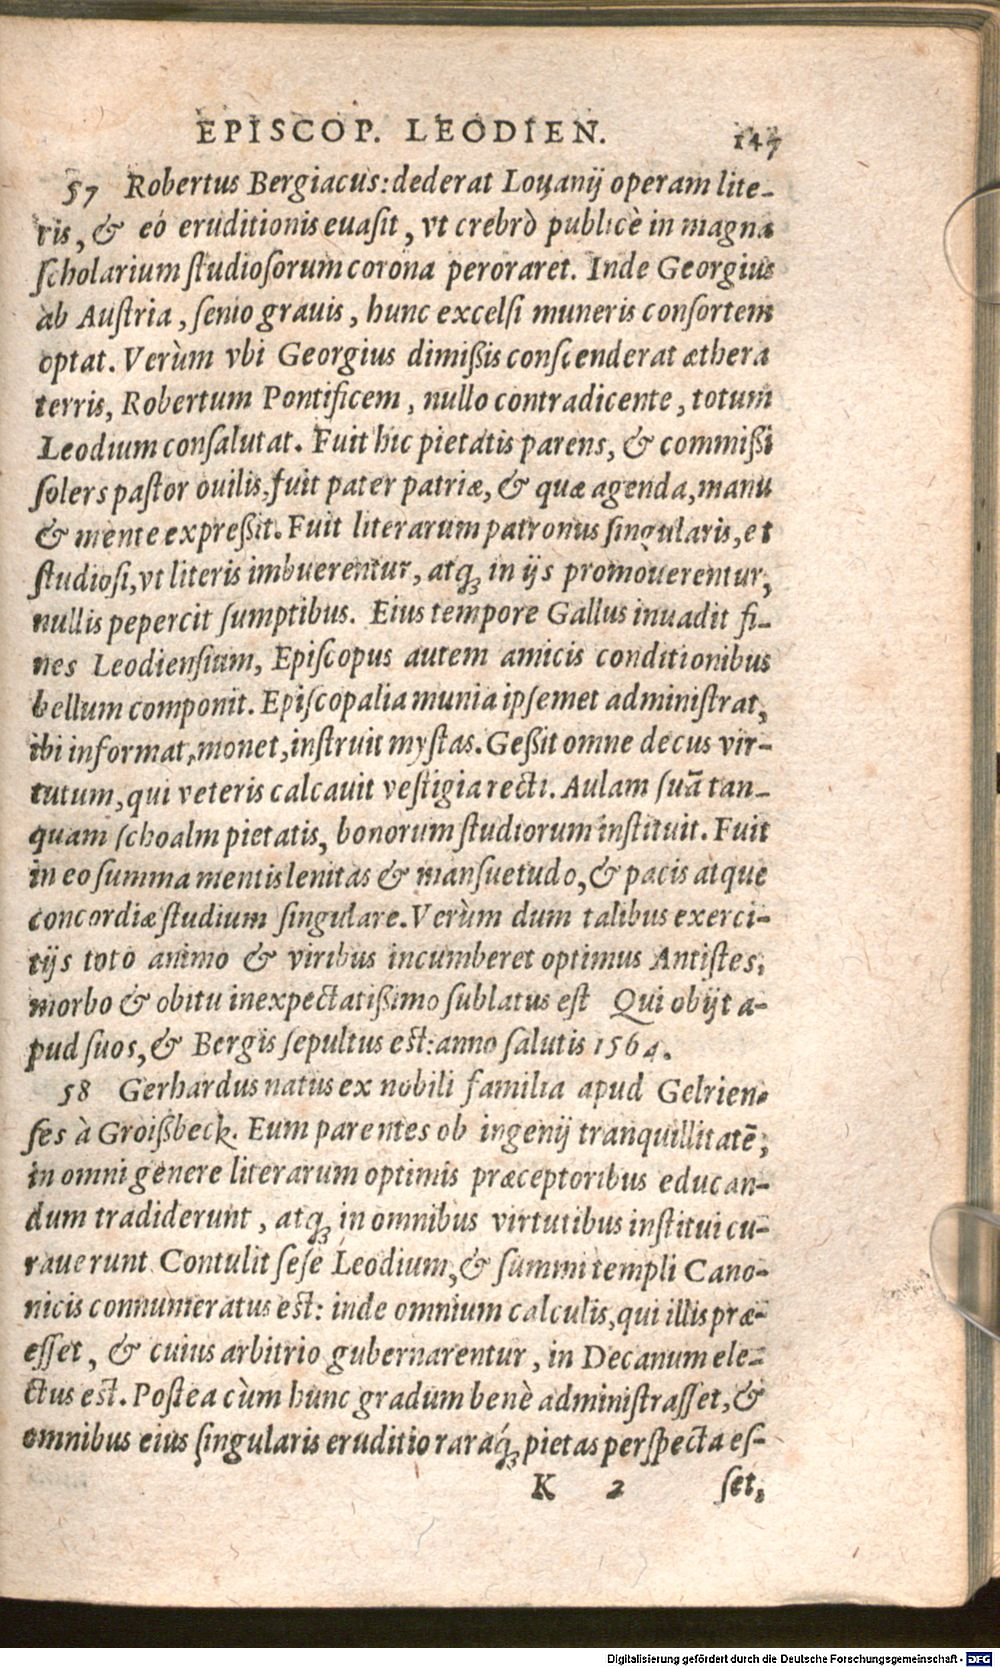 EPISCOP. LEODIEN. 147
57 Robertus Bergiacus: dederat Louanij operam lite-
ris, & eò eruditionis euasit, vt crebrò publicè in magna
scholarium studiosorum corona peroraret. Inde Georgius
ab Austria, senio grauis, hunc excelsi muneris consortem
optat. Verùm vbi Georgius dimißis conscenderat æthera
terris, Robertum Pontificem, nullo contradicente, totum
Leodium consalutat. Fuit hic pietatis parens, & commißi
solers pastor ouilis, fuit pater patriæ, & quæ agenda, manu
& mente expreßit. Fuit literarum patronus singularis, et
studiosi, vt literis imbuerentur, atq; in ijs promouerentur,
nullis pepercit sumptibus. Eius tempore Gallus inuadit fi-
nes Leodiensium, Episcopus autem amicis conditionibus
bellum componit. Episcopalia munia ipsemet administrat,
ibi informat, monet, instruit mystas. Geßit omne decus vir-
tutum, qui veteris calcauit vestigia recti. Aulam suā tan-
quam schoalm pietatis, bonorum studiorum instituit. Fuit
in eo summa mentis lenitas & mansuetudo, & pacis atque
concordiæ studium singulare. Verùm dum talibus exerci-
tijs toto animo & viribus incumberet optimus Antistes,
morbo & obitu inexpectatißimo sublatus est Qui obijt a-
pud suos, & Bergis sepultus est: anno salutis 1564.
58 Gerhardus natus ex nobili familia apud Gelrien-
ses à Groißbeck. Eum parentes ob ingenij tranquillitatē,
in omni genere literarum optimis præceptoribus educan-
dum tradiderunt, atq; in omnibus virtutibus institui cu-
rauerunt Contulit sese Leodium, & summi templi Cano-
nicis connumeratus est: inde omnium calculis, qui illis præ-
esset, & cuius arbitrio gubernarentur, in Decanum ele-
ctus est. Postea cùm hunc gradum benè administrasset, &
omnibus eius singularis eruditio raraq́; pietas perspecta es-
K 2 set,
Digitalisierung gefördert durch die Deutsche Forschungsgemeinschaft - DFG